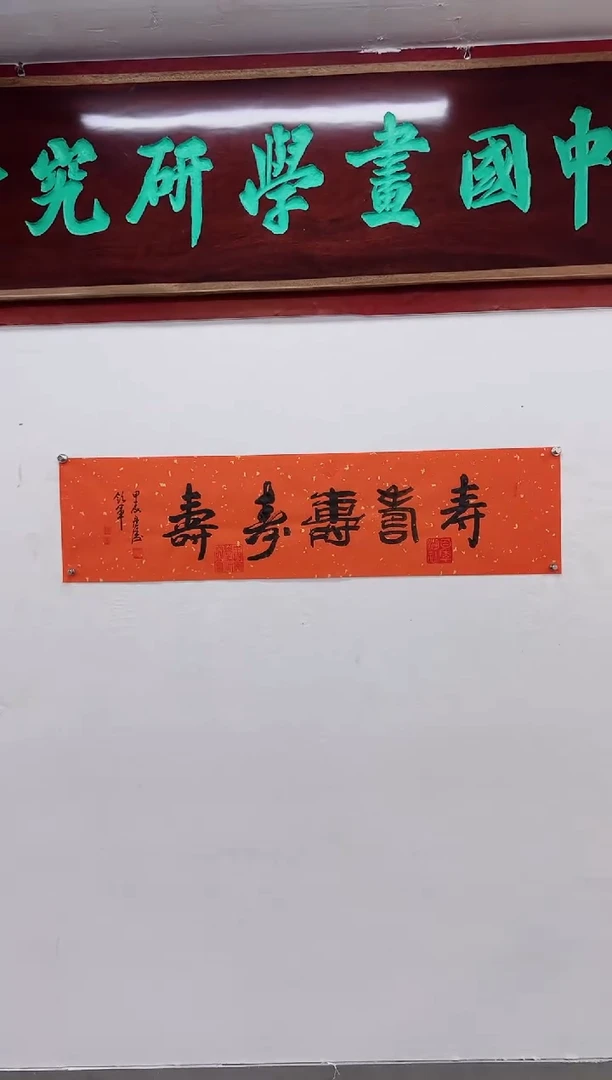 中國畫學研究
寿壽壽寿壽
甲辰